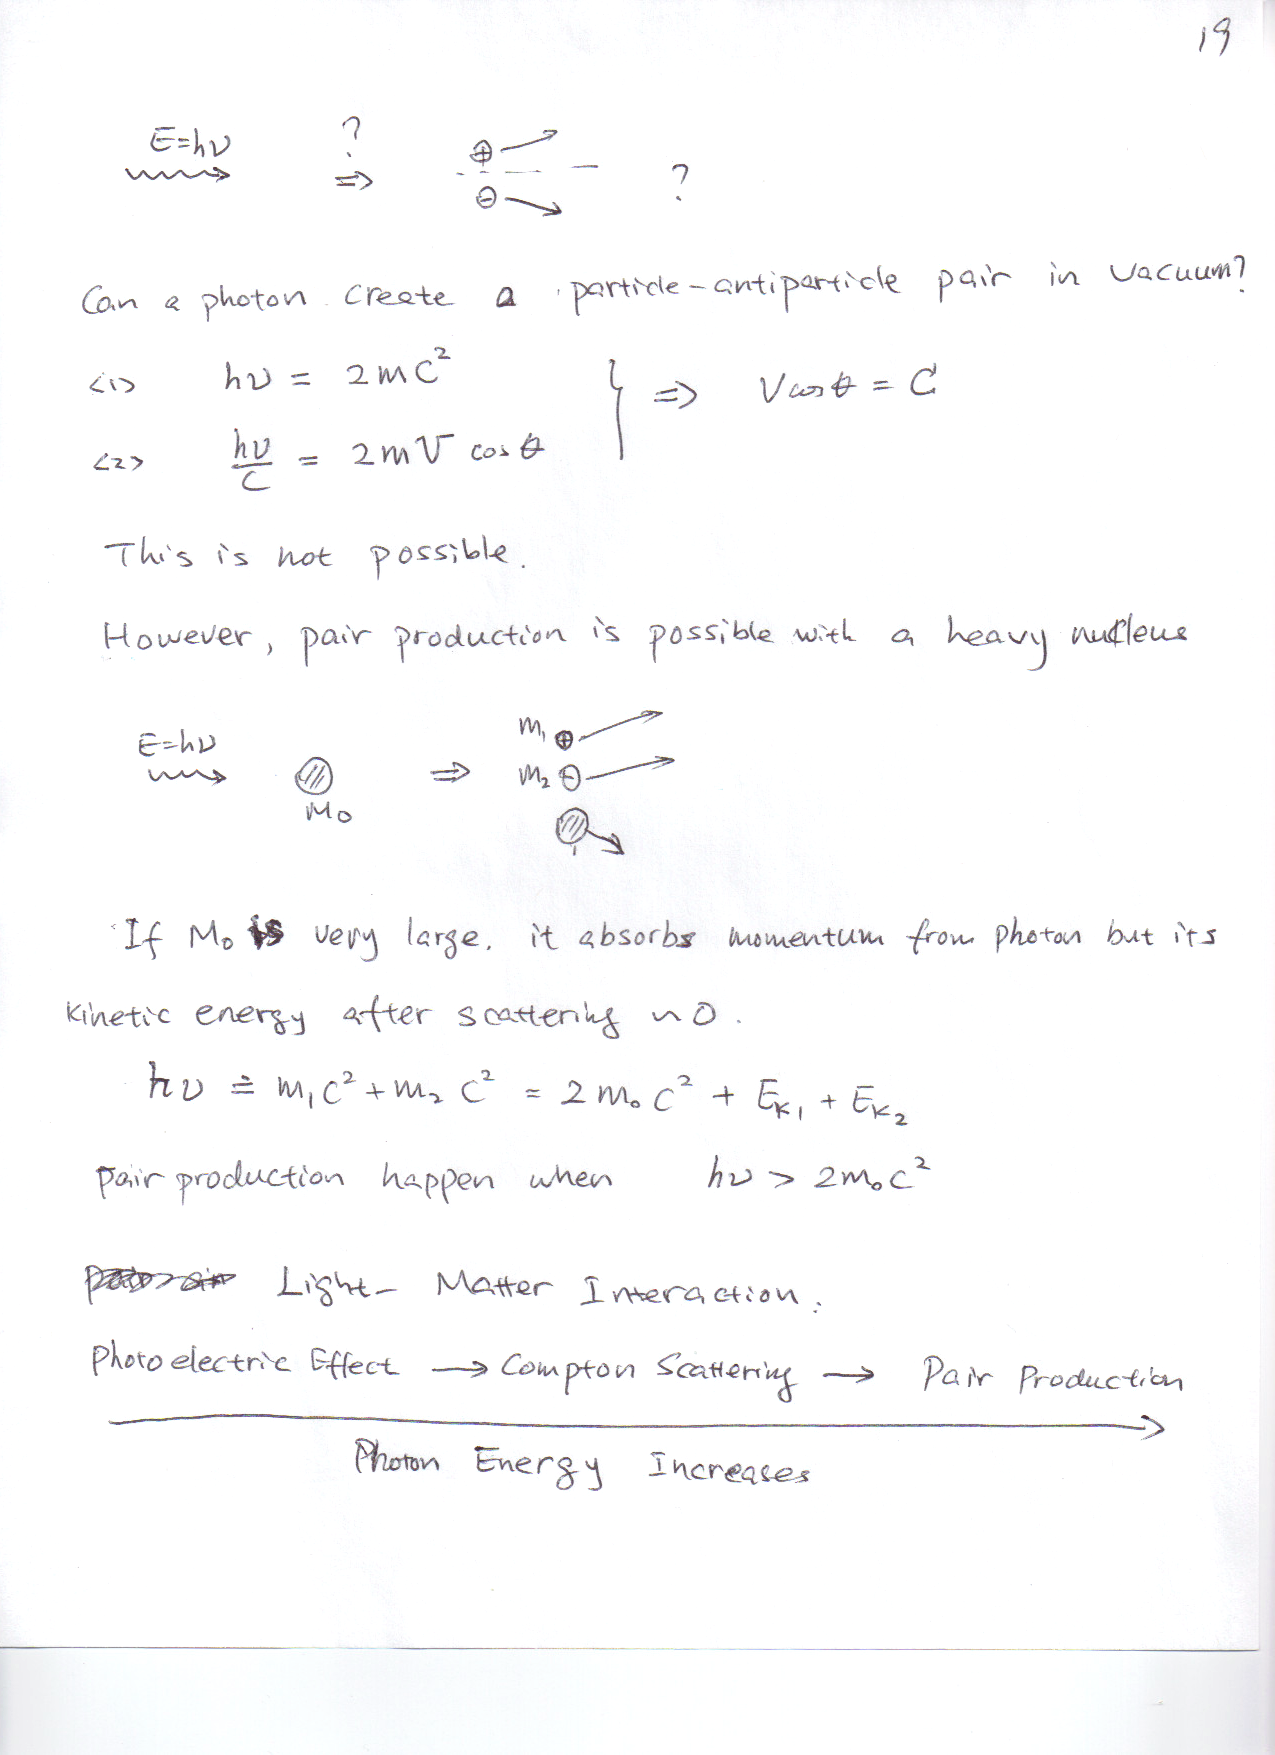 19
E=hν ? ⊕
⇒ ⊖ ?
Can a photon create a particle-antiparticle pair in vacuum?
<1> hν = 2mc² } ⇒ V cos θ = C
<2> hν/C = 2mV cos θ
This is not possible.
However, pair production is possible with a heavy nucleus
E=hν M₀ ⇒ m₁ ⊕
m₂ ⊖
If M₀ is very large, it absorbs momentum from photon but its
Kinetic energy after scattering ~ 0.
hν ≐ m₁c² + m₂c² = 2m₀c² + E_K1 + E_K2
pair production happen when hν > 2m₀c²
Light-Matter Interaction:
Photoelectric Effect → Compton Scattering → Pair Production
Photon Energy Increases